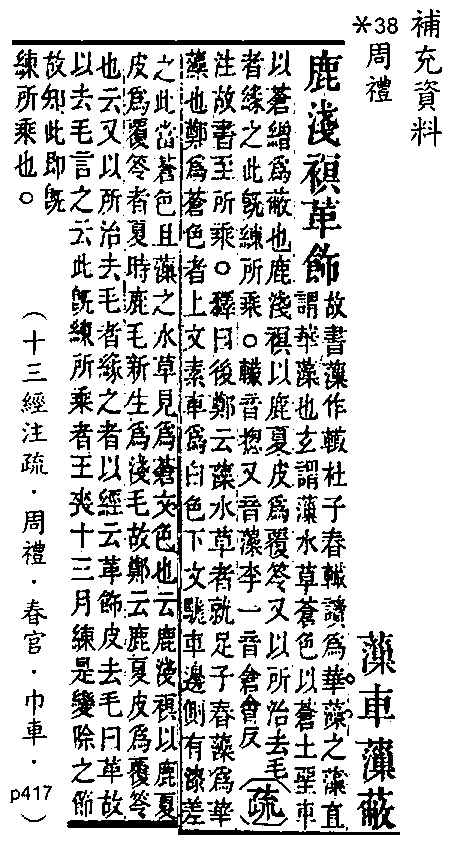 補充資料
＊38周禮
藻車藻蔽
鹿淺𧜀革飾
故書藻作轍杜子春轍讀為華藻之藻直
謂華藻也玄謂藻水草蒼色以蒼土堊車
以蒼繒為蔽也鹿淺𧜀以鹿夏皮為覆笭又以所治去毛
者緣之此既練所乘。轍音摠又音藻李一音倉會反（疏）
注故書至所乘。釋曰後鄭云藻水草者就足子春藻為華
藻也鄭為蒼色者上文素車為白色下文駹車邊側有漆差
之此當蒼色且藻之水草見為蒼文色也云鹿淺𧜀以鹿夏
皮為覆笭者夏時鹿毛新生為淺毛故鄭云鹿夏皮為覆笭
也云又以所治去毛者緣之者以經云革飾皮去毛曰革故
以去毛言之云此既練所乘者王喪十三月練是變除之節
故知此即既
練所乘也。
（十三經注疏．周禮．春官．巾車．p417）